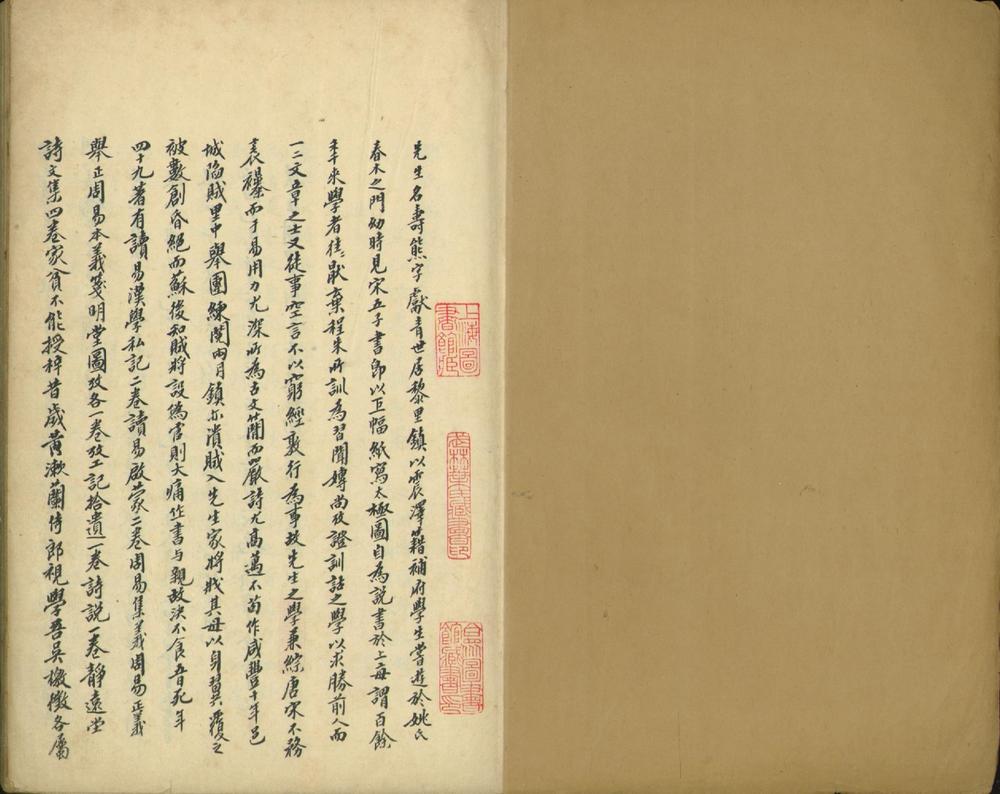 先生名壽熊字獻青世居黎里鎮以震澤籍補府學生嘗遊於姚氏
春木之門幼時見宋五子書即以巨幅紙寫太極圖自為說書於上每謂百餘
年來學者往〻厭棄程朱所訓為習聞專尚攷證訓詁之學以求勝前人而
一二文章之士又徒事空言不以窮經敦行為事故先生之學兼綜唐宋不務
表襮而于易用力尤深所為古文簡而嚴詩尤高邁不苟作咸豐十年邑
城陷賊里中舉團練閱兩月鎮亦潰賊入先生家將戕其母以身翼覆之
被數創昏絕而蘇後知賊將設偽官則大痛作書与親故決不食音死年
四十九著有讀易漢學私記二卷讀易啟蒙二卷周易集義周易正義
舉正周易本義箋明堂圖攷各一卷攷工記拾遺一卷詩說一卷靜遠堂
詩文集四卷家貧不能授梓昔歲黃漱蘭侍郎視學吾吳檄徵各屬
上海圖
書館藏
合眾圖書
館藏書印